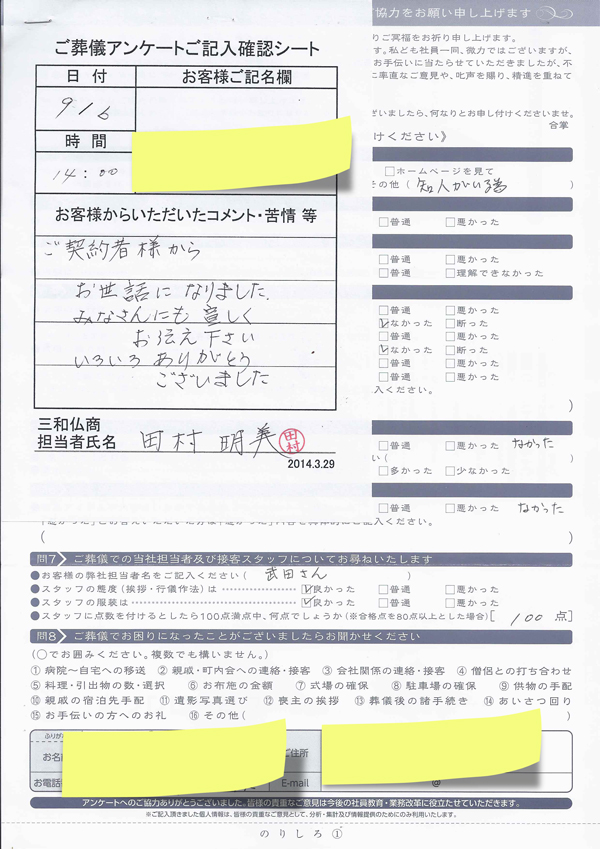 ご葬儀アンケートご記入確認シート
日付 お客様ご記名欄
9/6
時間
14:00
お客様からいただいたコメント・苦情 等
ご契約者様から
お世話になりました
みなさんにも宜しく
お伝え下さい
いろいろありがとう
ございました
三和仏商
担当者氏名 田村明美 田村
2014.3.29
協力をお願い申し上げます
りご冥福をお祈り申し上げます。
す。私ども社員一同、微力ではございますが、
お手伝いに当たらせていただきましたが、不
に率直なご意見や、叱声を賜り、積進を重ねて
ざいましたら、何なりとお申し付けくださいませ。
合掌
けください》
□ホームページを見て
その他( 知人がいる為 )
□普通 □悪かった
□普通 □悪かった
□普通 □理解できなかった
□普通 □悪かった
☑なかった □断った
□普通 □悪かった
☑なかった □断った
□普通 □悪かった
□普通 □悪かった
入ください。
)
□普通 □悪かった なかった
い(
□多かった □少なかった
□普通 □悪かった なかった
ご記入ください。
( )
問7 ご葬儀での当社担当者及び接客スタッフについてお尋ねいたします
●お客様の弊社担当者名をご記入ください( 武田さん )
●スタッフの態度(挨拶・行儀作法)は ☑良かった □普通 □悪かった
●スタッフの服装は ☑良かった □普通 □悪かった
●スタッフに点数を付けるとしたら100点満点中、何点でしょうか(※合格点を80点以上とした場合)[ 100 点]
問8 ご葬儀でお困りになったことがございましたらお聞かせください
(○でお囲みください。複数でも構いません。)
①病院〜自宅への移送 ②親戚・町内会への連絡・接客 ③会社関係の連絡・接客 ④僧侶との打ち合わせ
⑤料理・引出物の数・選択 ⑥お布施の金額 ⑦式場の確保 ⑧駐車場の確保 ⑨供物の手配
⑩親戚の宿泊先手配 ⑪遺影写真選び ⑫喪主の挨拶 ⑬葬儀後の諸手続き ⑭あいさつ回り
⑮お手伝いの方へのお礼 ⑯その他( )
ふりが
お名 ご住所
お電話 E-mail @
アンケートへのご協力ありがとうございました。皆様の貴重なご意見は今後の社員教育・業務改革に役立たせていただきます。
※ご記入頂きました個人情報は、皆様の貴重なご意見として、分析・集計及び情報提供のためにのみ利用いたします。
のりしろ①